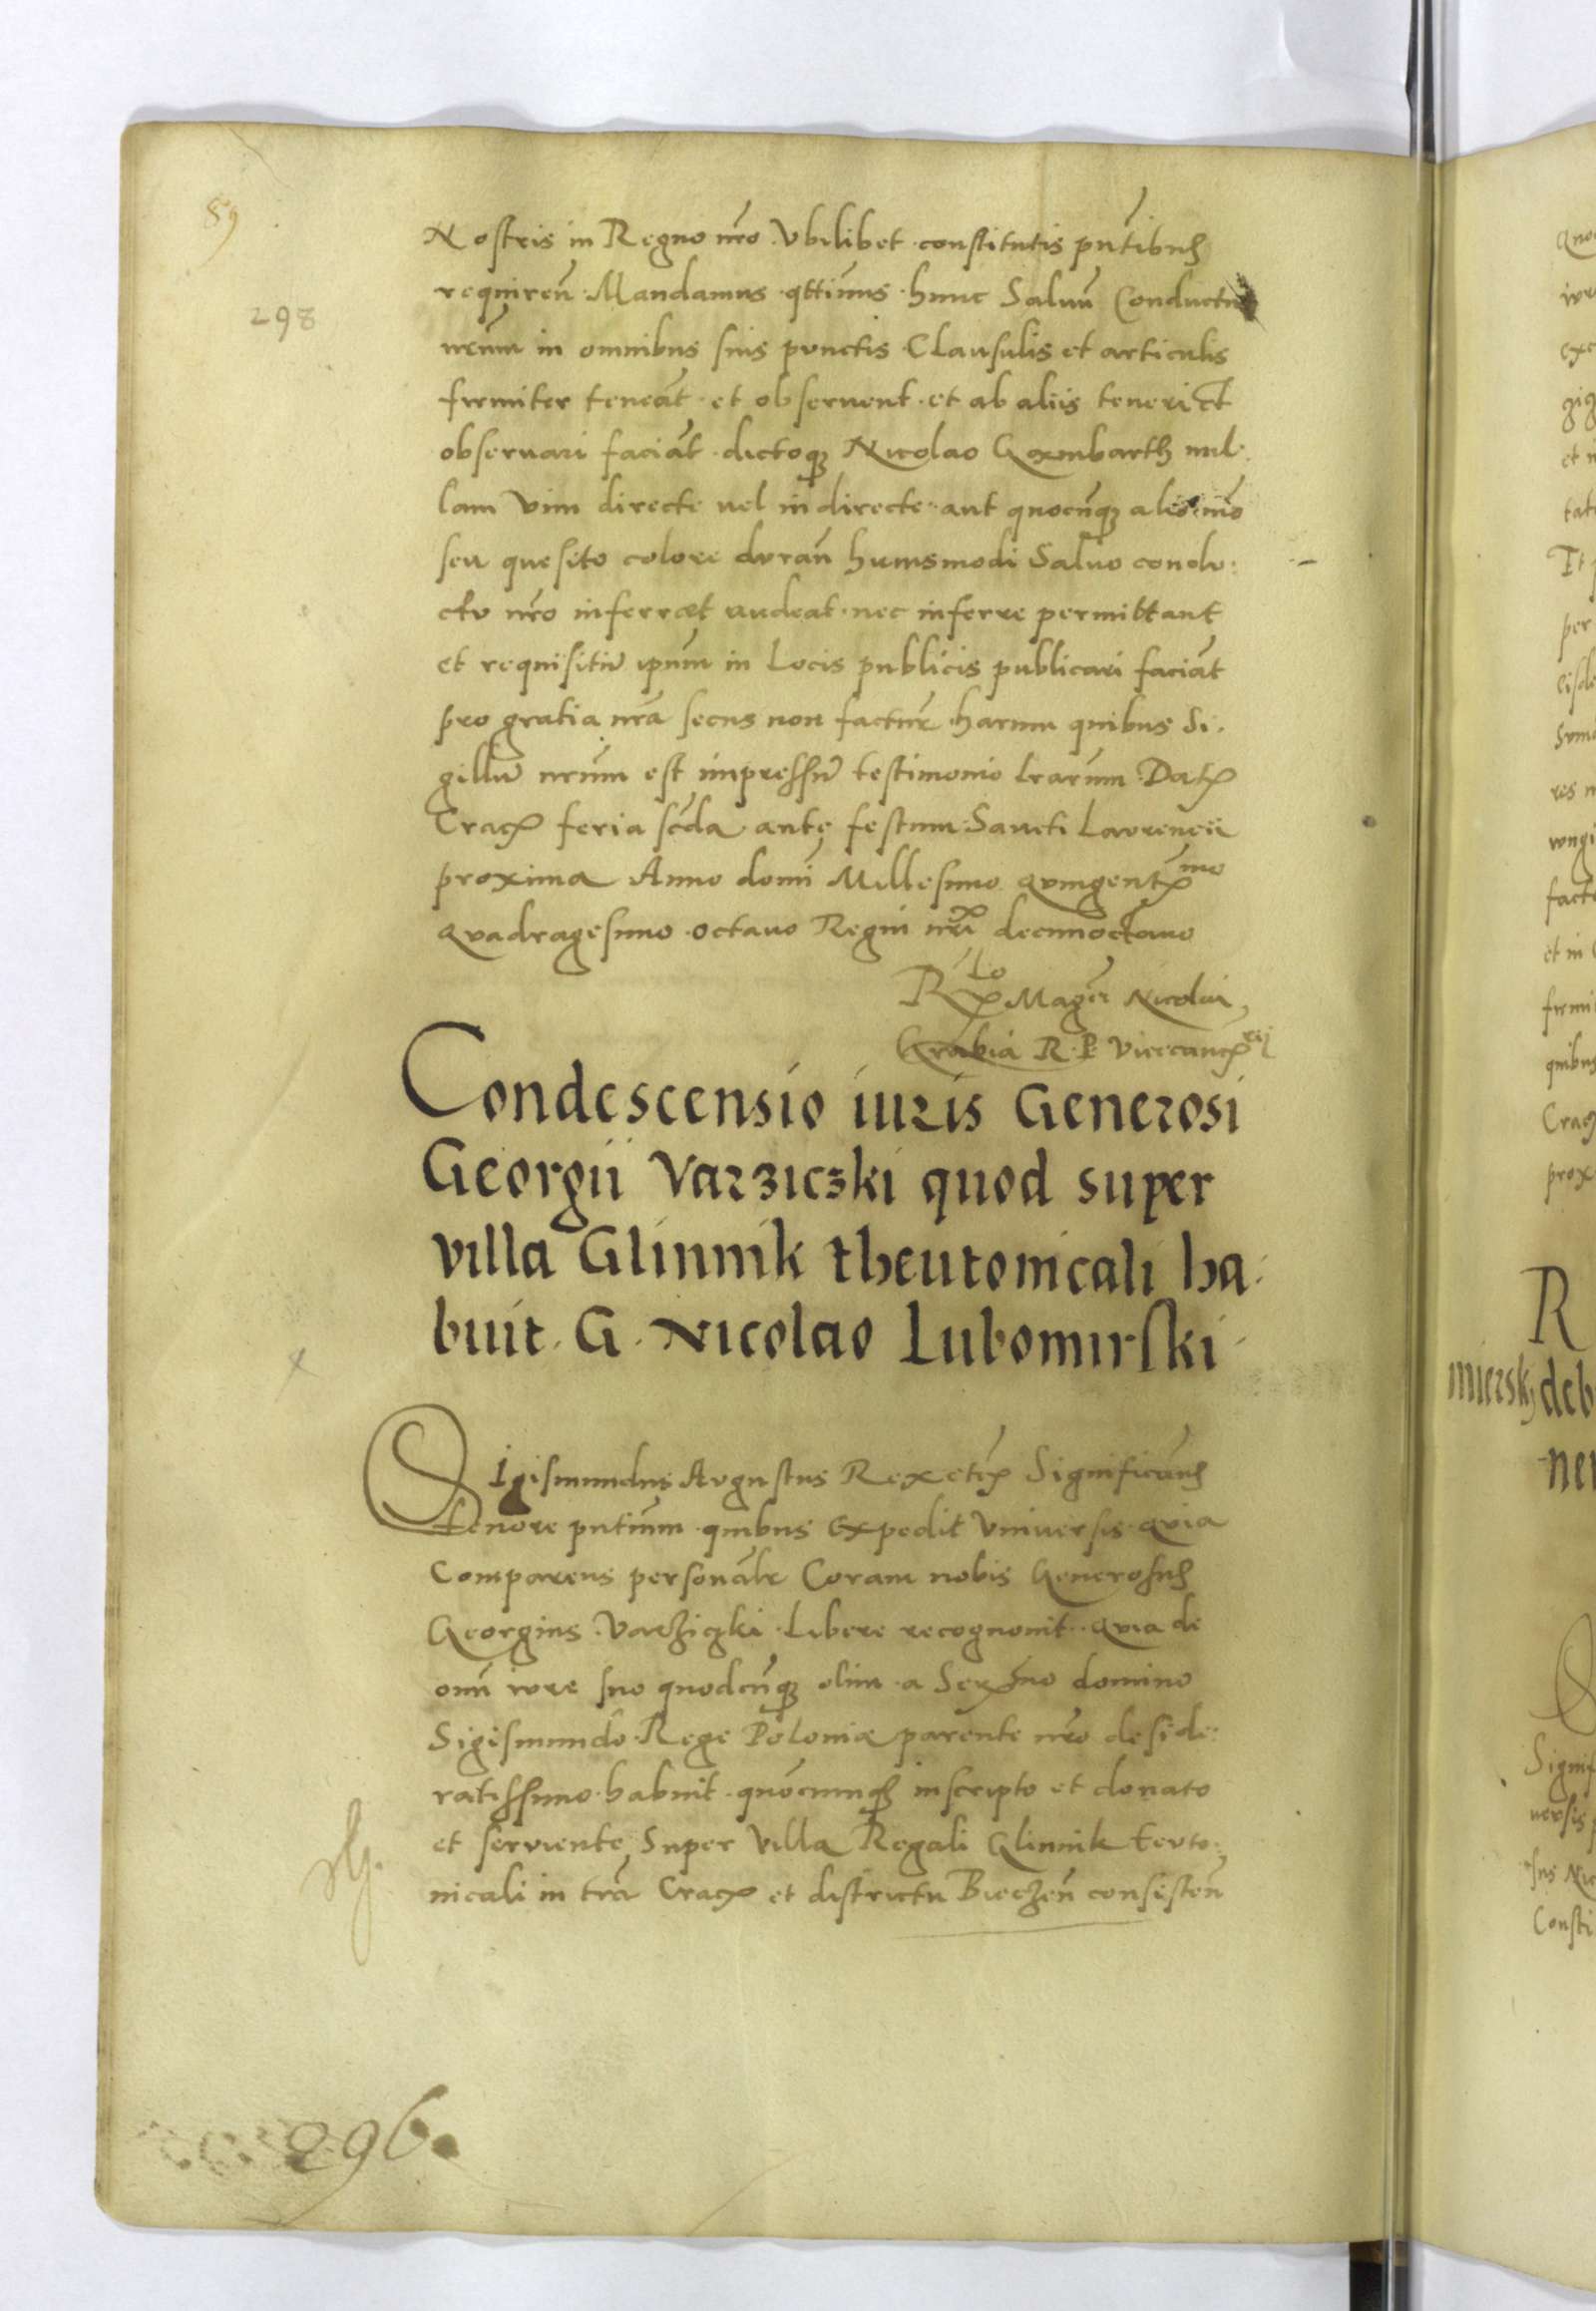 89
298
Nostris in Regno nr̃o Vbilibet constitutis pñtibus
requireñ Mandamus q̃ttinus hunc Saluũ Conductũ
nr̃um in omnibus suis punctis Clausulis et articulis
firmiter teneãt et obseruent et ab aliis teneri et
observari faciãt dictoqꝫ Nicolao nul-
lam vim directe uel indirecte aut quocũqꝫ alio mõ
seu quesito colore durañ huiusmodi Saluo condu:
ctu nr̃o inferræt audeat nec inferre permittant
et requisitiũ ip̃um in Locis publicis publicari faciãt
pro gratia nr̃a secus non factuꝝ harum quibus Si-
gillũ nr̃um est impressũ testimonio lr̃arum Datꝭ
Cracꝭ feria scd̃a ante festum Sancti Laurencii
proxima Anno domĩ Millesimo quingentꝭmo
quadragesimo octauo Regni nr̃i decimoctauo
Rꝭlo Magc̃i Nicolai
Grabia R. P. Vicecancꝭrij
Condescensio iuris Generosi
Georgii Varziczki quod super
villa Glinnik theutonicali ha:
buit. G. Nicolao Lubomirski
Sigismundus Augustus Rex etcꝭ Significam̃us
tenore pñtium quibus expedit Vniuersis quia
Comparens personalr̃ Coram nobis Generosus
Georgius Varziczki Libere recognouit quia de
omñi iure suo quodcũqꝫ olim a Serꝭmo domino
Sigismundo Rege Poloniæ parente nr̃o deside:
ratissimo habuit quocumqꝫ inscripto et donato
et serviente Super Villa Regali Glinnik teuto:
nicali in tr̃a Cracꝭ et districtu Bieczeñ consisteñ
296.
R
miersk deb